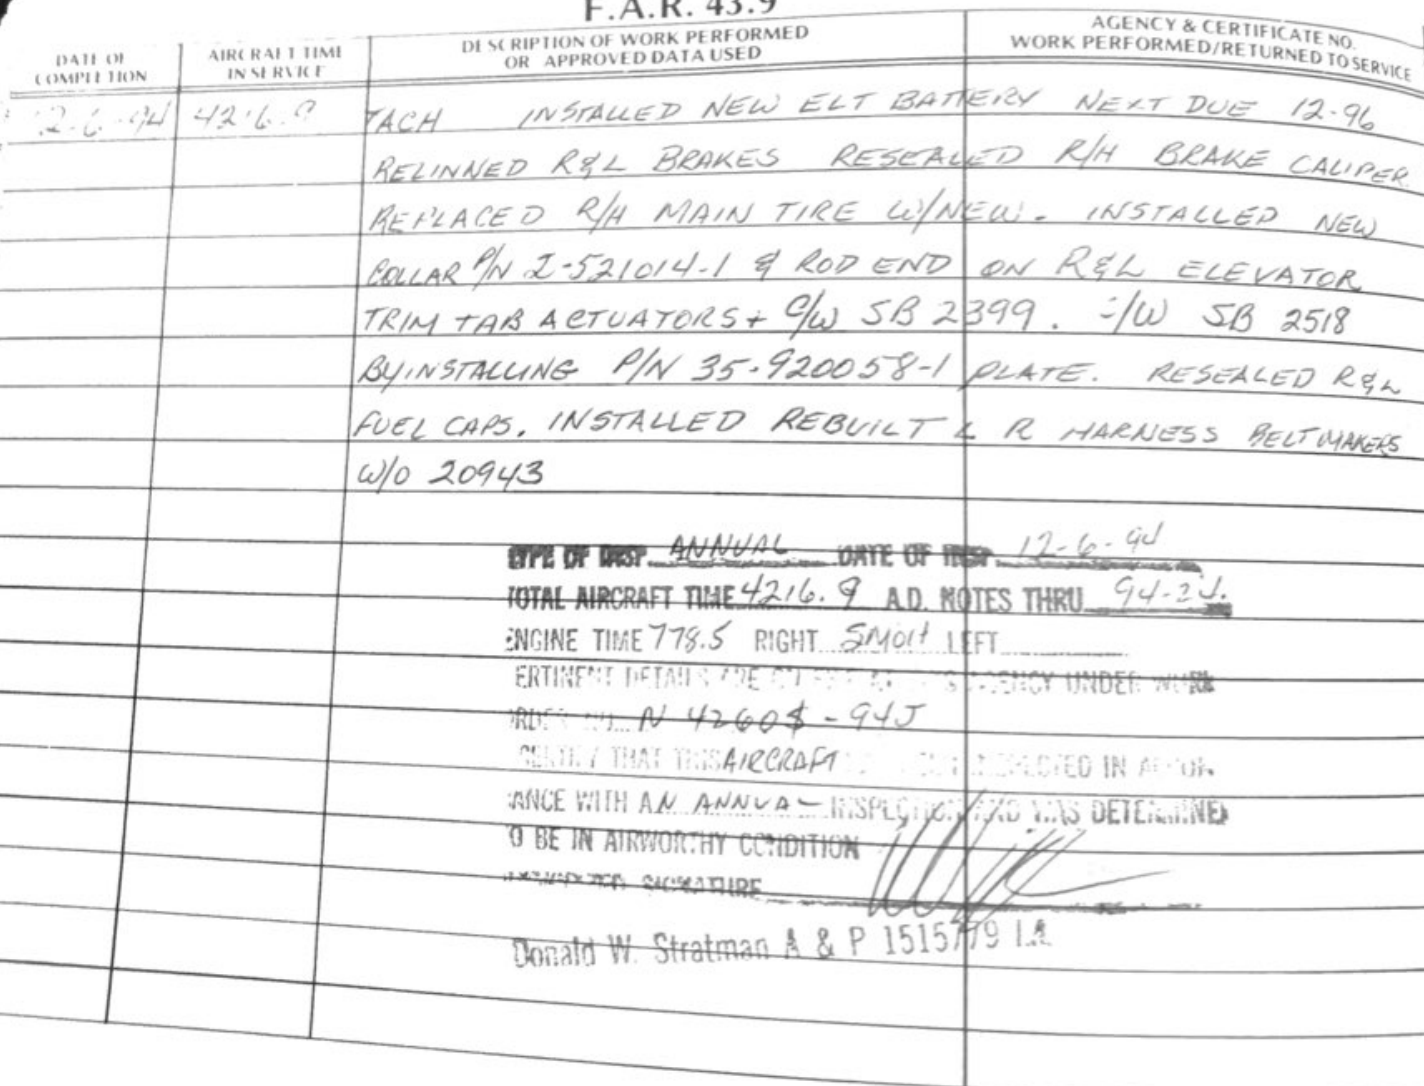 F.A.R. 43.9
DATE OF COMPLETION
AIRCRAFT TIME IN SERVICE
DESCRIPTION OF WORK PERFORMED
OR APPROVED DATA USED
AGENCY & CERTIFICATE NO.
WORK PERFORMED/RETURNED TO SERVICE
12-6-94 4216.9 TACH INSTALLED NEW ELT BATTERY NEXT DUE 12-96
RELINNED R&L BRAKES RESEALED R/H BRAKE CALIPER
REPLACED R/H MAIN TIRE W/NEW. INSTALLED NEW
COLLAR P/N I-521014-1 & ROD END ON R&L ELEVATOR
TRIM TAB ACTUATORS + C/W SB 2399. C/W SB 2518
BY INSTALLING P/N 35-920058-1 PLATE. RESEALED R&L
FUEL CAPS. INSTALLED REBUILT L R HARNESS BELTMAKERS
W/O 20943
TYPE OF INSP. ANNUAL DATE OF INSP. 12-6-94
TOTAL AIRCRAFT TIME 4216.9 A.D. NOTES THRU 94-24.
ENGINE TIME 778.5 RIGHT SMOH LEFT
ERTINENT DETAILS ARE ON FILE AT THIS AGENCY UNDER WORK
RDER NO. N 4260$-94J
CERTIFY THAT THIS AIRCRAFT INSPECTED IN ACCOR
ANCE WITH AN ANNUAL INSPECTION AND WAS DETERMINED
O BE IN AIRWORTHY CONDITION
SIGNATURE
Donald W. Stratman A & P 1515779 I.A.